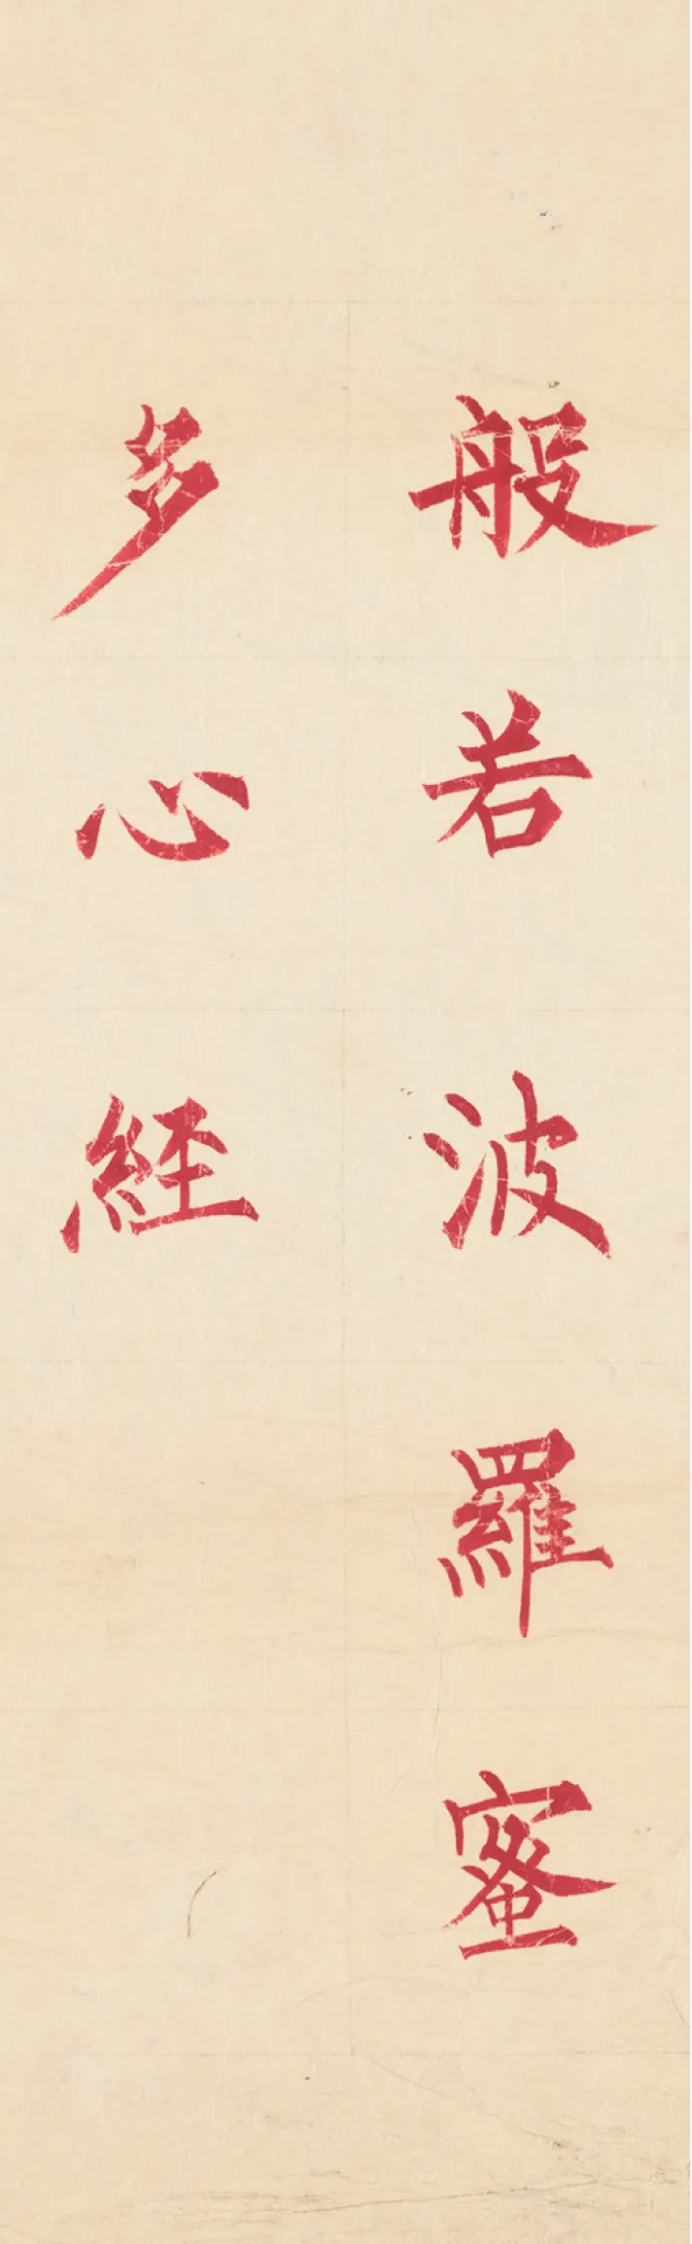 般若波羅蜜
多心経